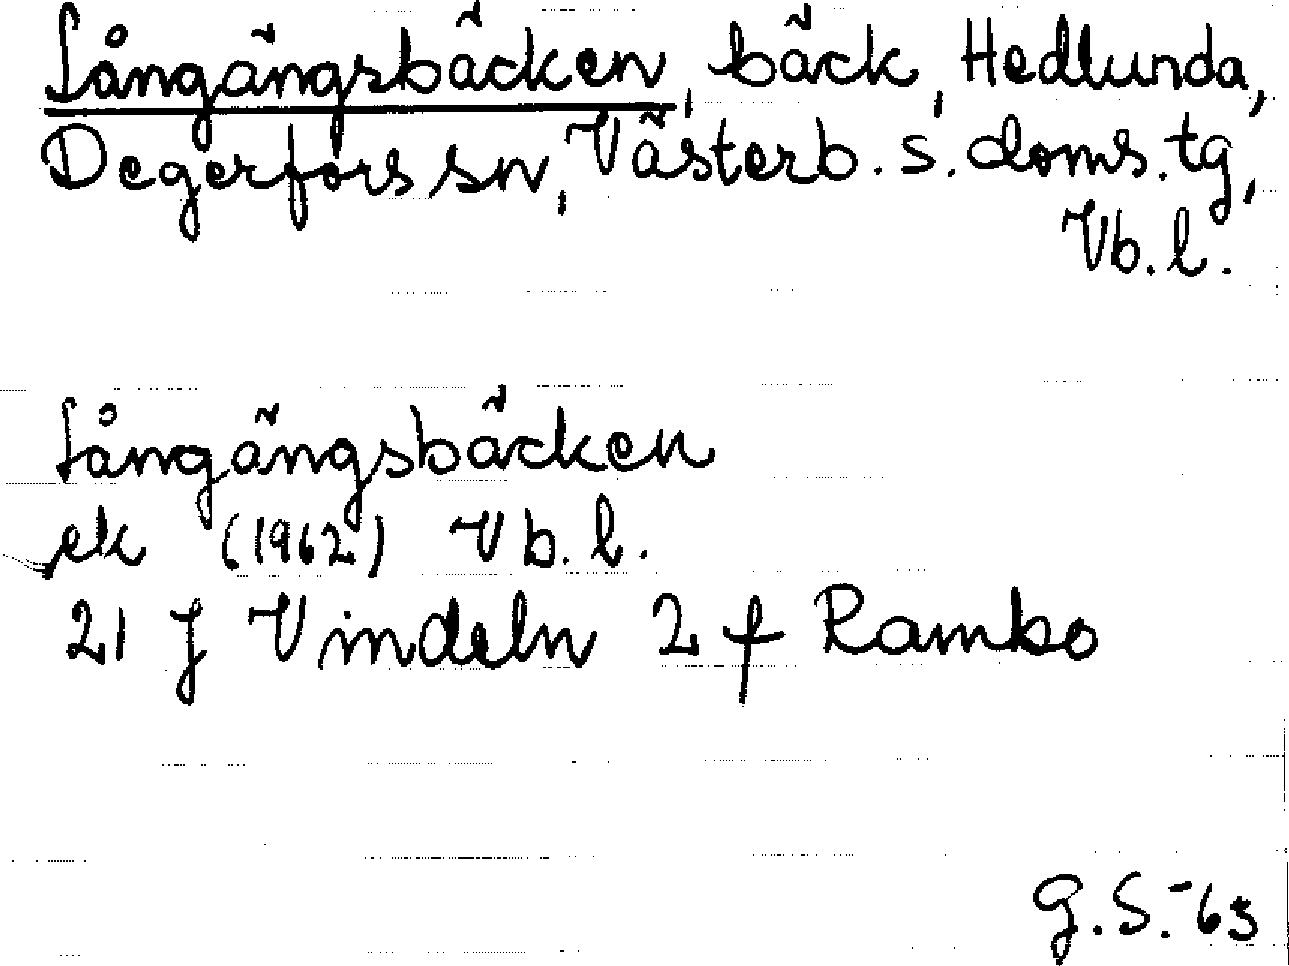 Långängsbäcken, bäck, Hedlunda,
Degerfors sn, Västerb. s. doms. tg,
Vb. l.
Långängsbäcken
ek (1962) Vb. l.
21 J Vindeln 2 f Rambo
G.S.-63